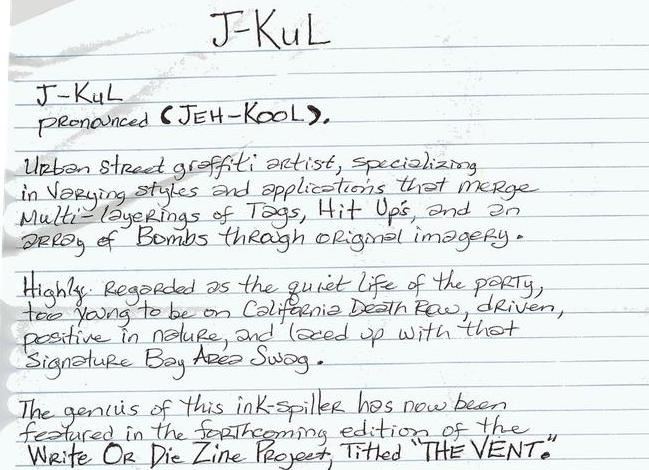 J-KuL
J-KuL
pronounced (JEH-KOOL).
Urban Street graffiti artist, specializing
in Varying styles and applications that merge
Multi-layerings of Tags, Hit Up's, and an
array of Bombs through original imagery.
Highly Regarded as the quiet life of the party,
too young to be on California Death Row, driven,
positive in nature, and laced up with that
Signature Bay Area Swag.
The genius of this ink-spiller has now been
featured in the forthcoming edition of the
Write Or Die Zine Project, Titled "THE VENT."